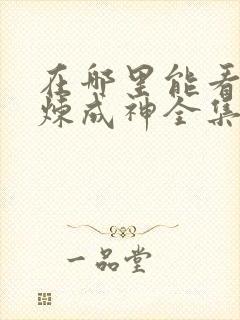 在哪里能看
炼成神全集
一品堂